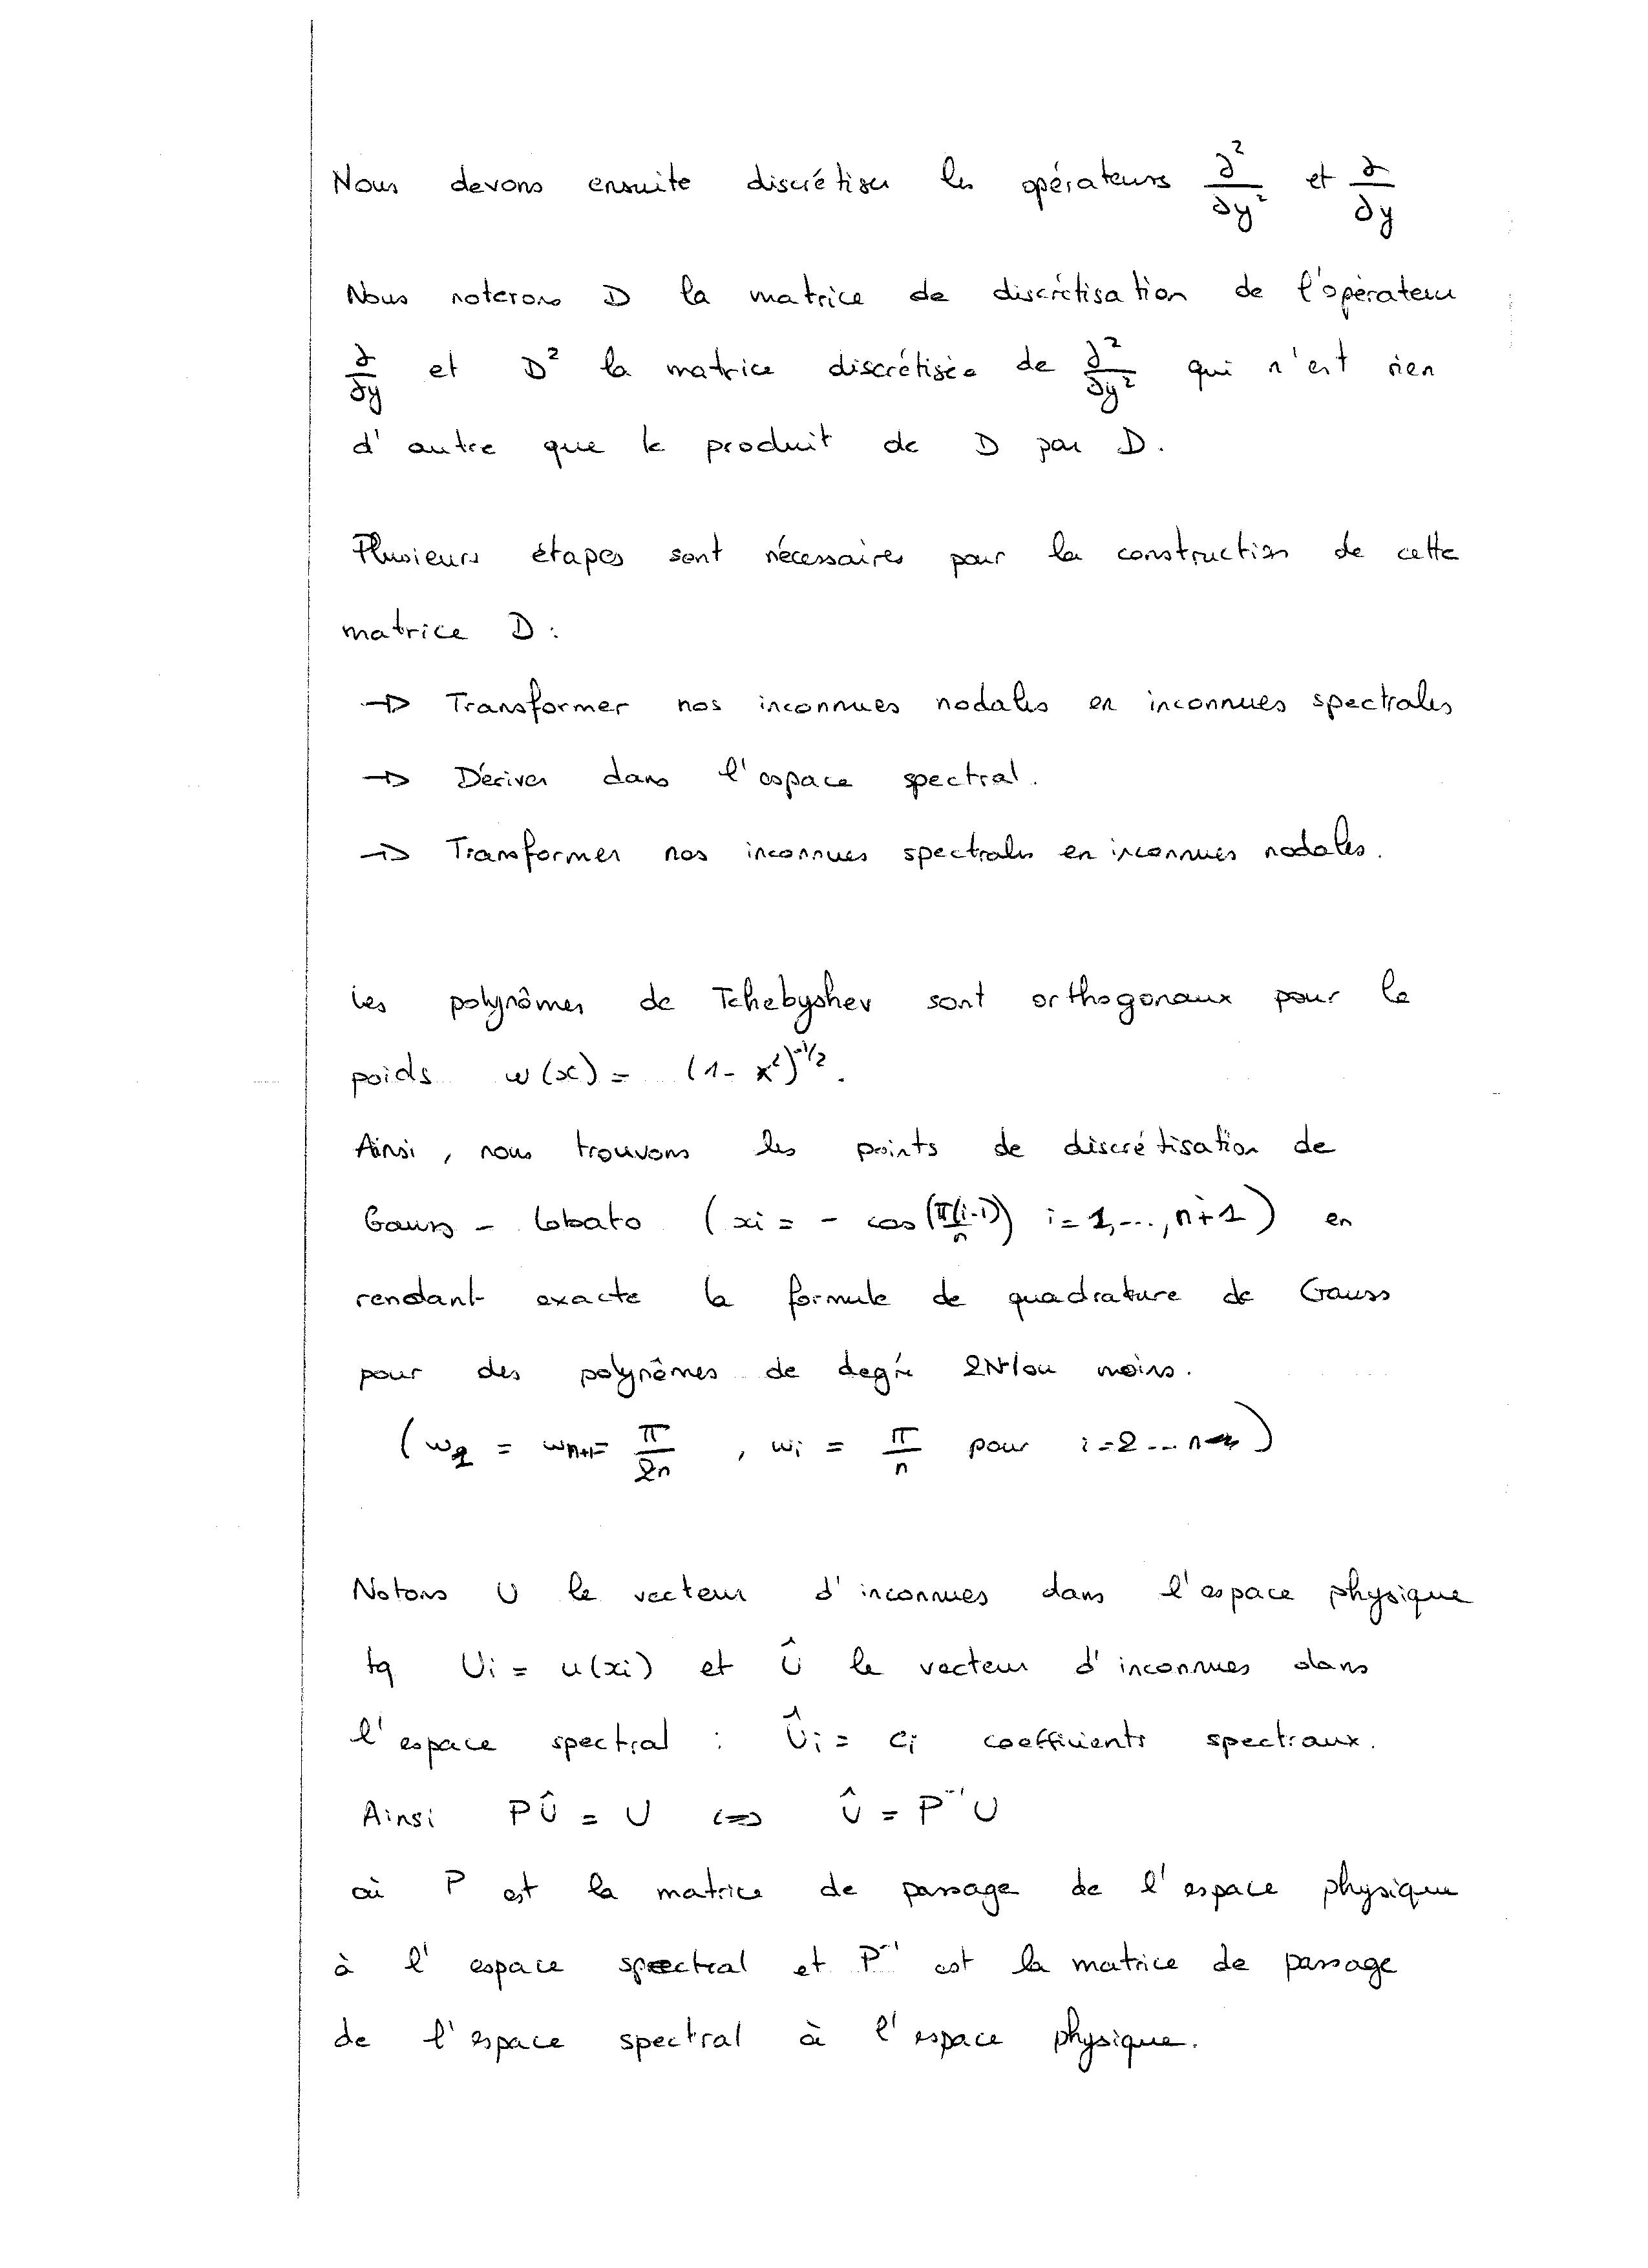 Nous devons ensuite discrétiser les opérateurs ∂²/∂y² et ∂/∂y
Nous noterons D la matrice de discrétisation de l'opérateur
∂/∂y et D² la matrice discrétisée de ∂²/∂y² qui n'est rien
d'autre que le produit de D par D.
Plusieurs étapes sont nécessaires pour la construction de cette
matrice D :
→ Transformer nos inconnues nodales en inconnues spectrales
→ Dériver dans l'espace spectral.
→ Transformer nos inconnues spectrales en inconnues nodales.
Les polynômes de Tchebyshev sont orthogonaux pour le
poids w(x) = (1 - x²)^-1/2.
Ainsi, nous trouvons les points de discrétisation de
Gauss - Lobato (xi = - cos(π(i-1)/n) i = 1,...,n+1) en
rendant exacte la formule de quadrature de Gauss
pour des polynômes de degré ou moins.
(w = wn+1 = π/2n , wi = π/n pour i = 2 ... n)
Notons U le vecteur d'inconnues dans l'espace physique
tq Ui = u(xi) et Û le vecteur d'inconnues dans
l'espace spectral : Ûi = ci coefficients spectraux.
Ainsi PÛ = U <=> Û = P⁻¹U
où P est la matrice de passage de l'espace physique
à l'espace spectral et P⁻¹ est la matrice de passage
de l'espace spectral à l'espace physique.